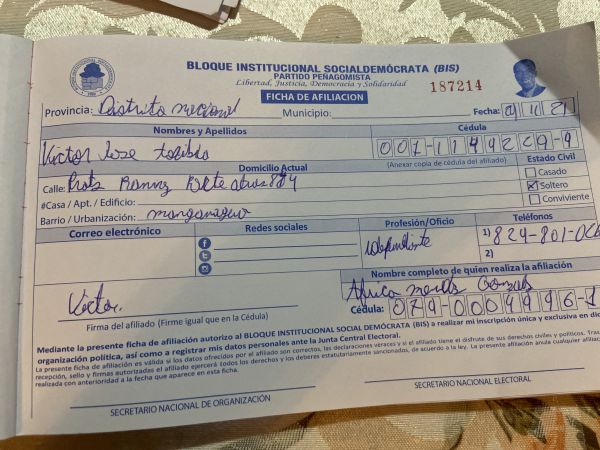 BLOQUE INSTITUCIONAL SOCIALDEMÓCRATA (BIS)
PARTIDO PEÑAGOMISTA
Libertad, Justicia, Democracia y Solidaridad
187214
FICHA DE AFILIACION
Provincia: Distrito nacional Municipio: Fecha:
Nombres y Apellidos Cédula
Victor Jose toribio 001-1149229-9
Domicilio Actual (Anexar copia de cédula del afiliado) Estado Civil
Calle: Casado
#Casa / Apt. / Edificio: Soltero
Barrio / Urbanización: managuayabo Conviviente
Correo electrónico Redes sociales Profesión/Oficio Teléfonos
independiente 1) 829-801-
2)
Nombre completo de quien realiza la afiliación
Victor. Africa
Firma del afiliado (Firme igual que en la Cédula) Cédula: 079-0004996-1
Mediante la presente ficha de afiliación autorizo al BLOQUE INSTITUCIONAL SOCIAL DEMÓCRATA (BIS) a realizar mi inscripción única y exclusiva en
organización política, así como a registrar mis datos personales ante la Junta Central Electoral.
La presente ficha de afiliación es válida si los datos ofrecidos por el afiliado son correctos, las declaraciones veraces y si el afiliado tiene el disfrute de sus derechos civiles y políticos.
recepción, sello y firmas autorizadas el afiliado ejercerá todos los derechos y los deberes estatutariamente sancionados, de acuerdo a la ley. La presente afiliación anula cualquier
realizada con anterioridad a la fecha que aparece en esta ficha.
SECRETARIO NACIONAL DE ORGANIZACIÓN SECRETARIO NACIONAL ELECTORAL